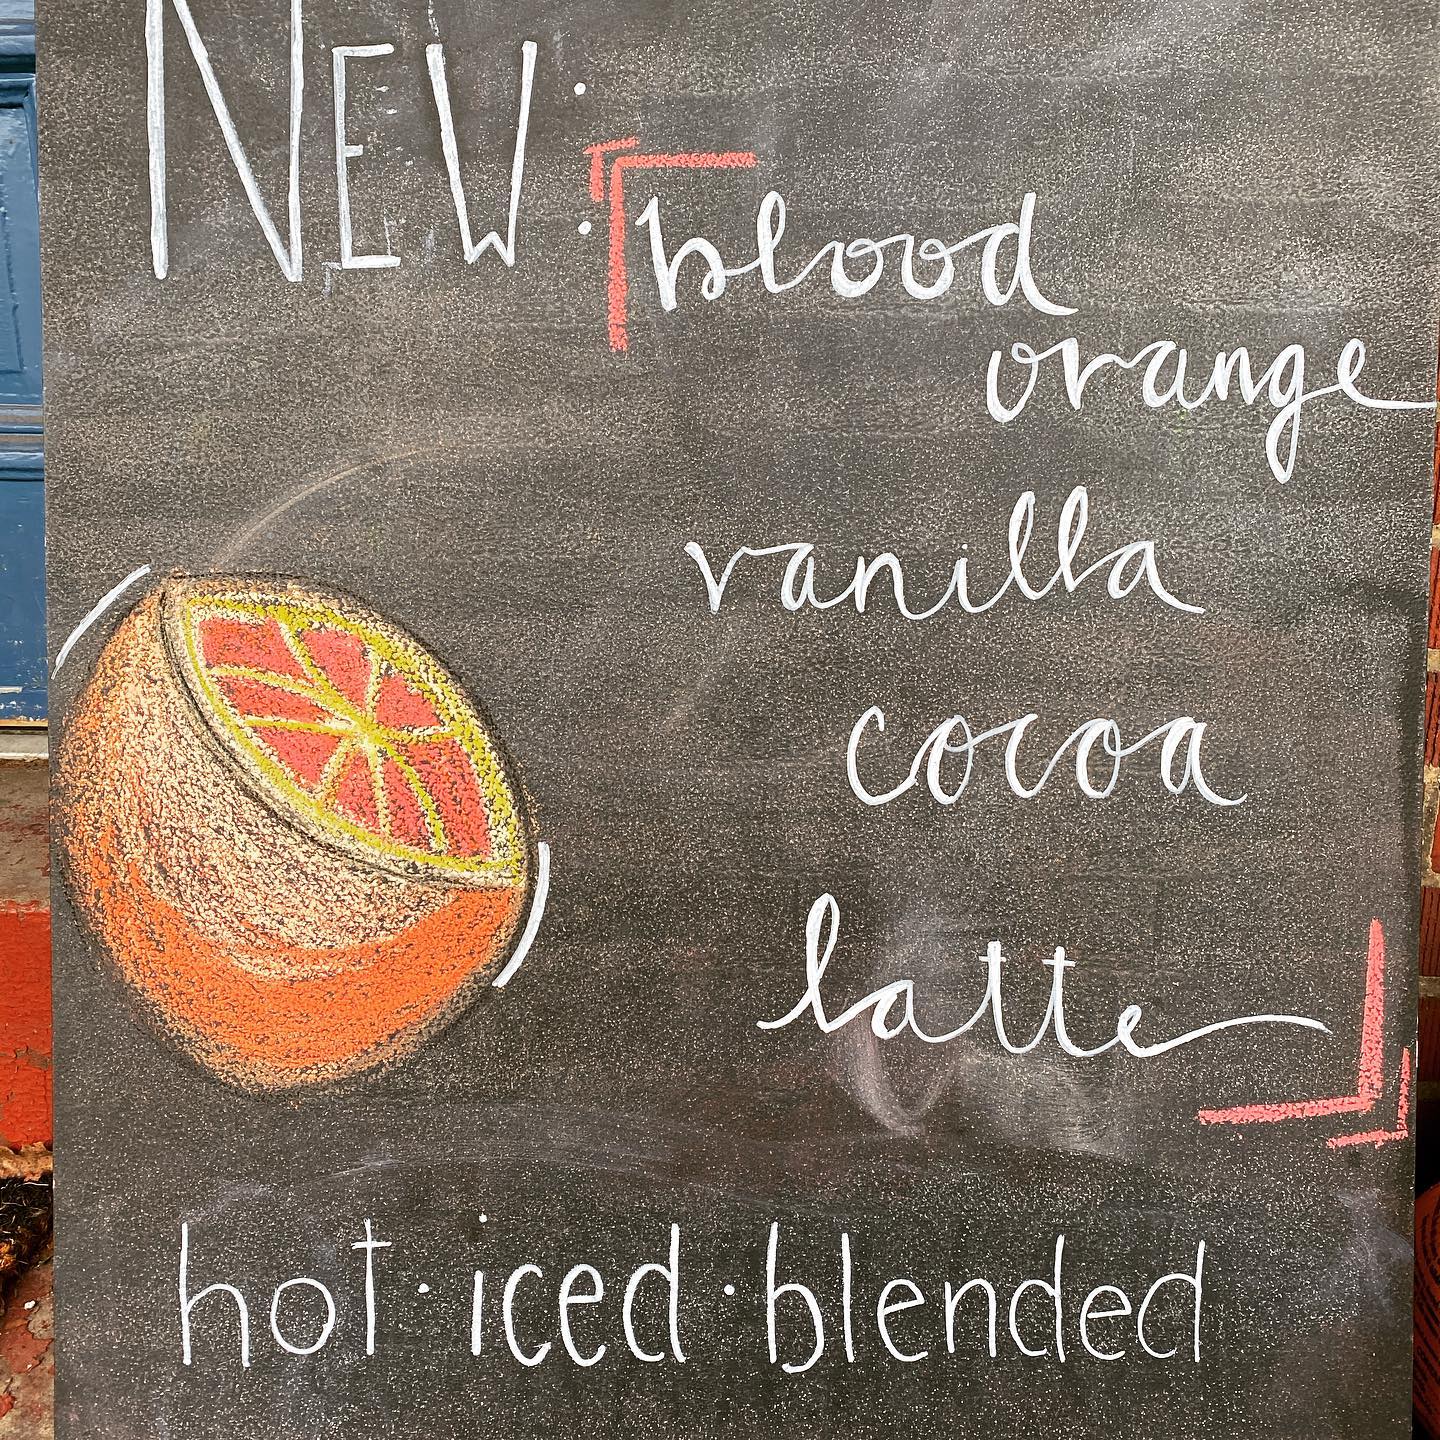 NEW:
blood
orange
vanilla
cocoa
latte
hot · iced · blended